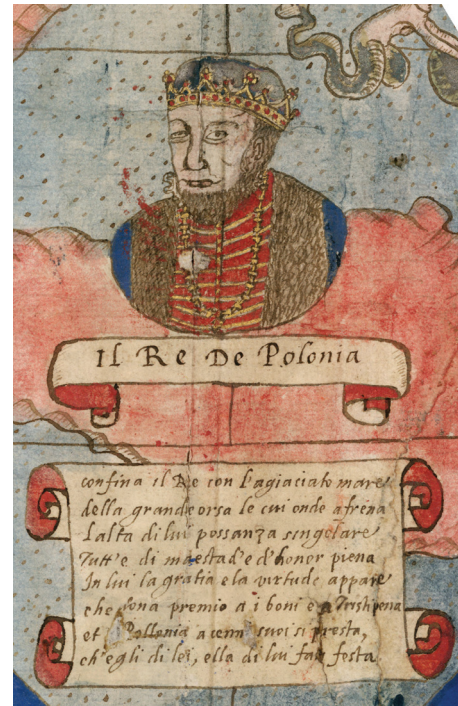 Il Re De Polonia
confina il Re con l'agiaciato mare
della grande orsa le cui onde afrena
L'alta di lui possanza singolare
Tutt'e di maestad'e d'honor piena
In lui la gratia e la virtude appare
che dona premio a i boni e a Tristi pena
et Pollonia a cenni suoi si presta,
ch'egli di lei, ella di lui fan festa